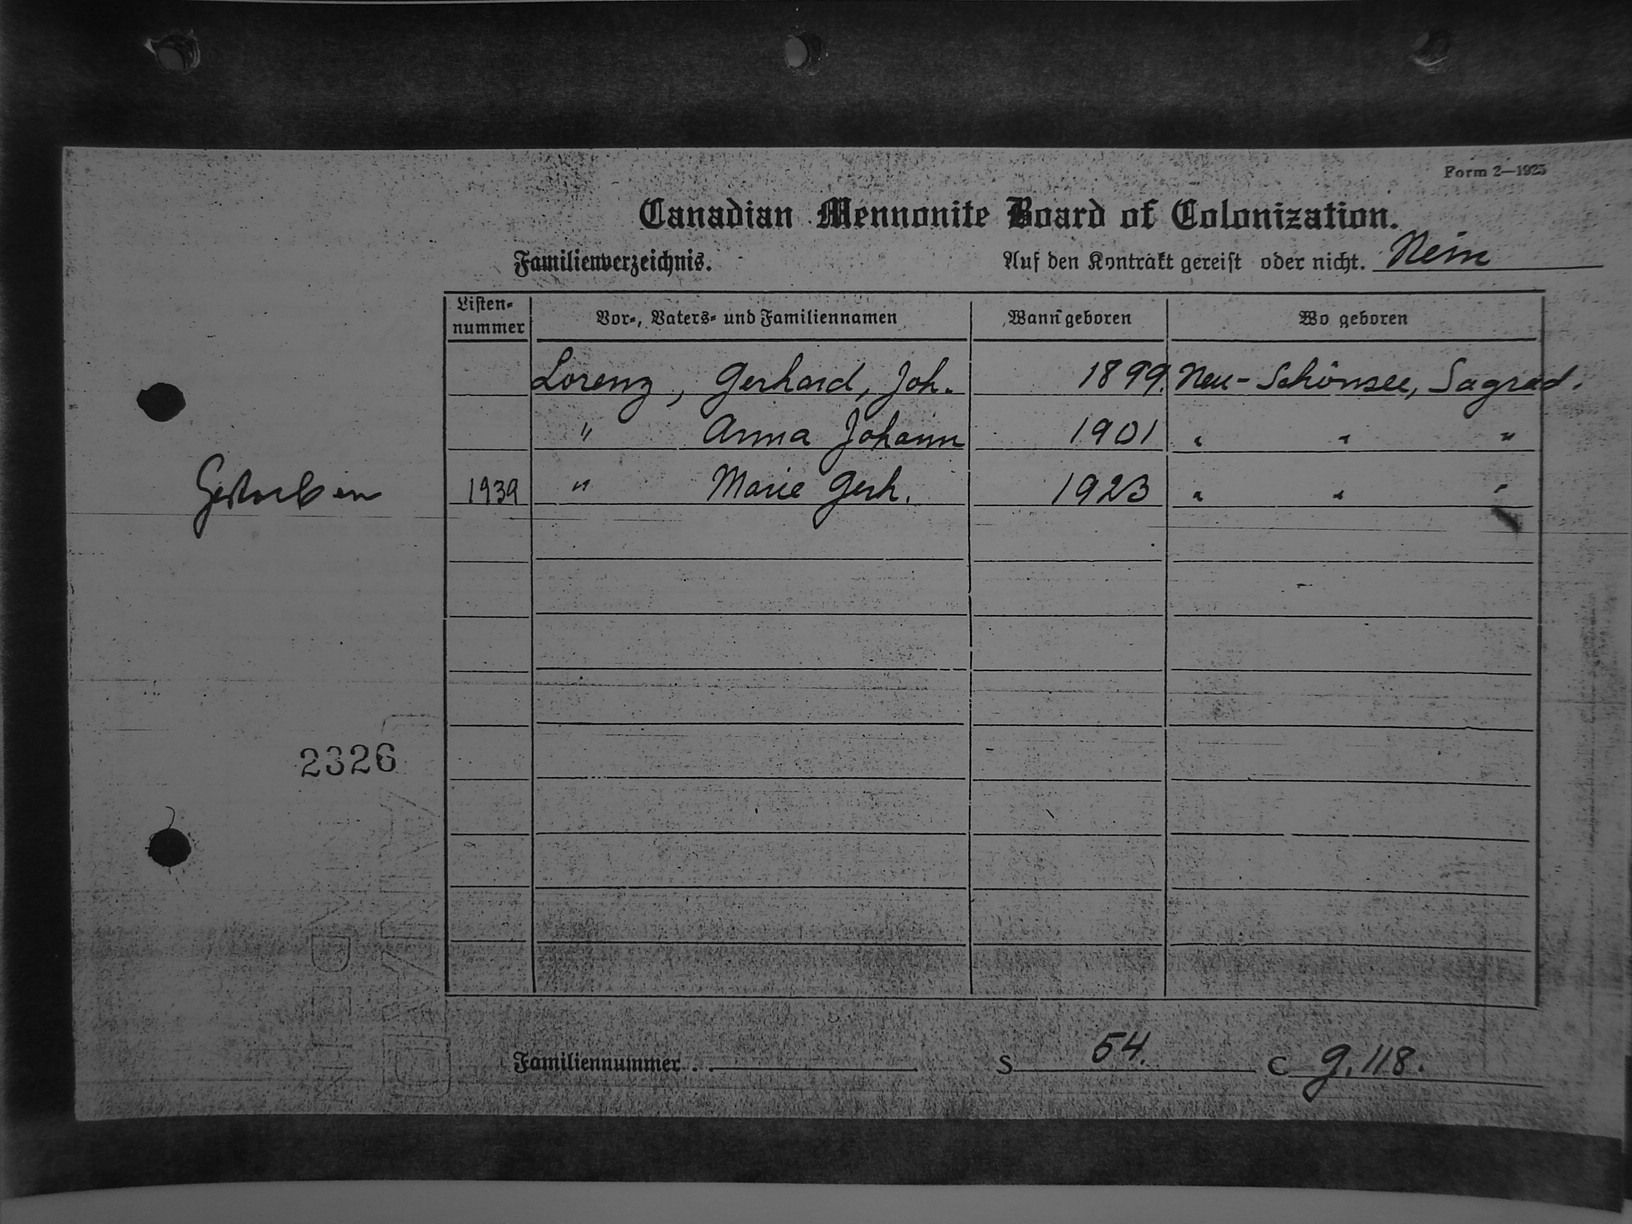 Form 2—1925
Canadian Mennonite Board of Colonization.
Familienverzeichnis. Auf den Kontrakt gereist oder nicht. Nein
Listen-nummer Vor-, Vaters- und Familiennamen Wann geboren Wo geboren
Lorenz, Gerhard, Joh. 1899. Neu-Schönsee, Sagrad.
" Anna Johann 1901 " " "
Gestorben 1939 " Marie Gerh. 1923 " " "
2326
Familiennummer. S 54. C g. 118.